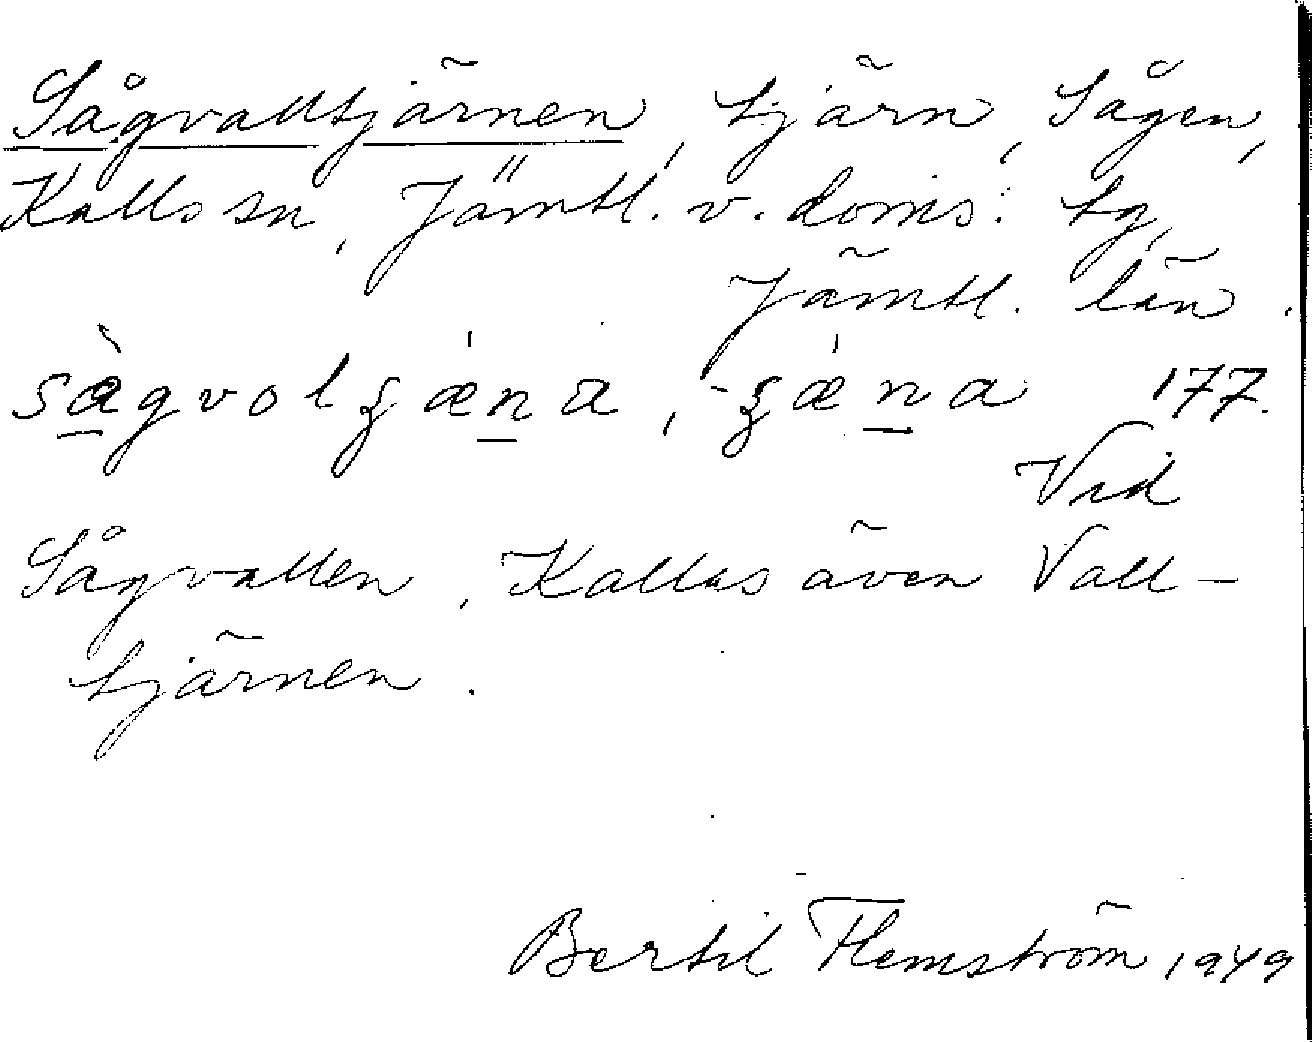 Sågvalltjärnen, tjärn, Sågen,
Kalls sn, Jämtl. v. doms. tg,
Jämtl. län.
sàgvolʒǽna, -ʒǽna 177.
Vid
Sågvallen. Kallas även Vall-
tjärnen.
Bertil Flemström 1949